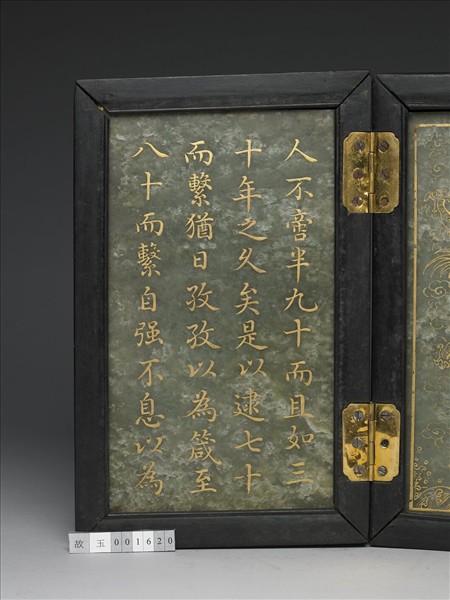 人不啻半九十而且如三
十年之久矣是以逮七十
而繫猶日孜孜以為箴至
八十而繫自强不息以為
故玉001620